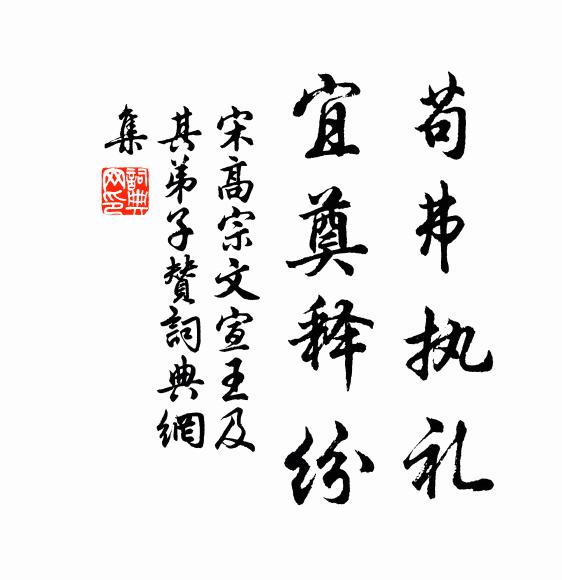 苟弗执礼
宜奠释纷
宋高宗文宣王及
其弟子赞詞典網
集
詞典
网印